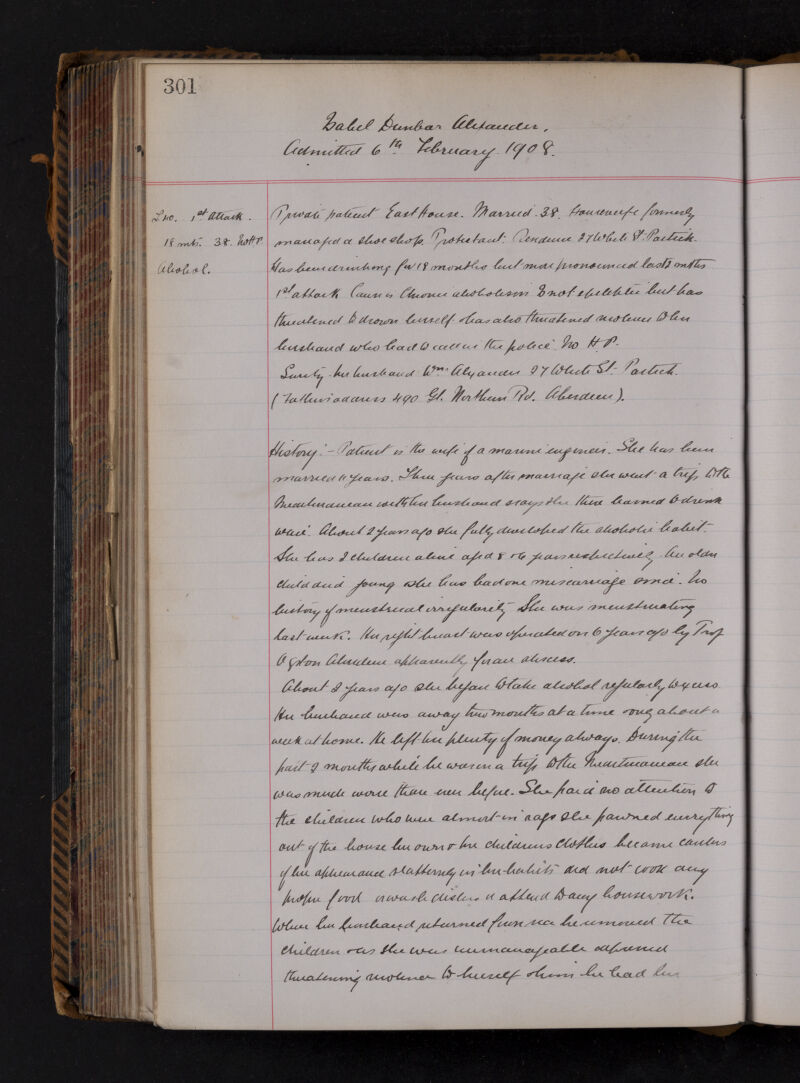 301
Isabel Dunbar Alexander.
Admitted 6th February 1908.
1st Attack.
18 mths. 38. No H.P.
Alcohol.
Private patient East House. Married. 38. Housewife formerly
managed a shoe shop. Protestant. Residence 27 White St. Partick.
Has been drinking for 18 months but more pronounced last 2 mths
1st attack Cause is Chronic alcoholism Is not epileptic but has
threatened to drown herself & has also threatened violence to her
husband who had to call in the police. No H.P.
Surety. her husband Wm. Alexander 27 White St. Partick.
(Father's address 490 Gt. Northern Rd. Aberdeen).
History:- Patient is the wife of a marine engineer. She has been
married 11 years. Three years after marriage she went a trip to the
Mediterranean with her husband & says she there learned to drink
wine. About 2 years ago she fully developed the alcoholic habit.
She has 2 children alive aged 8 & 6 years respectively. An older
child died young & she has had one miscarriage since. No
history of menstrual irregularity She was menstruating
last week. Her right breast was operated on 6 years ago by Prof
Ogston Aberdeen apparently for an abscess.
About 2 years ago she began to take alcohol regularly to excess
Her husband was away two months at a time & only about a
week at home. He left her plenty of money always. During the
past 2 months while he was on a trip to the Mediterranean she
was much worse than ever before. She paid no attention to
the children who were almost in rags she pawned everything
out of the house her own & her childrens clothes became careless
of her appearance & slatternly in her habits did not cook any
proper food or wash dishes or attend to any housework.
When her husband returned from sea he removed the
children & as she was unmanageable depressed
threatening violence to herself & him he had her